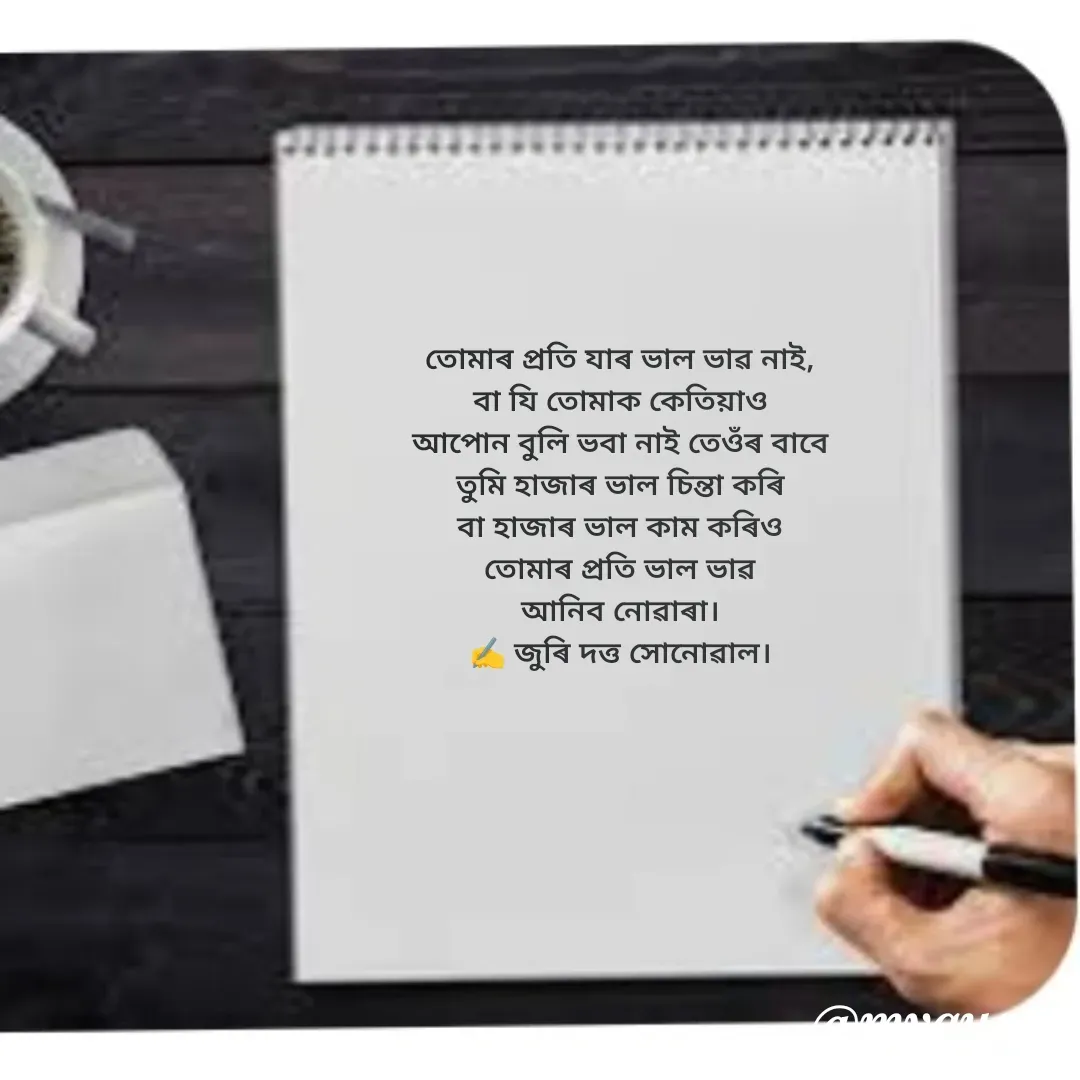 তোমাৰ প্ৰতি যাৰ ভাল ভাৱ নাই,
বা যি তোমাক কেতিয়াও
আপোন বুলি ভবা নাই তেওঁৰ বাবে
তুমি হাজাৰ ভাল চিন্তা কৰি
বা হাজাৰ ভাল কাম কৰিও
তোমাৰ প্ৰতি ভাল ভাৱ
আনিব নোৱাৰা।
✍️ জুৰি দত্ত সোনোৱাল।